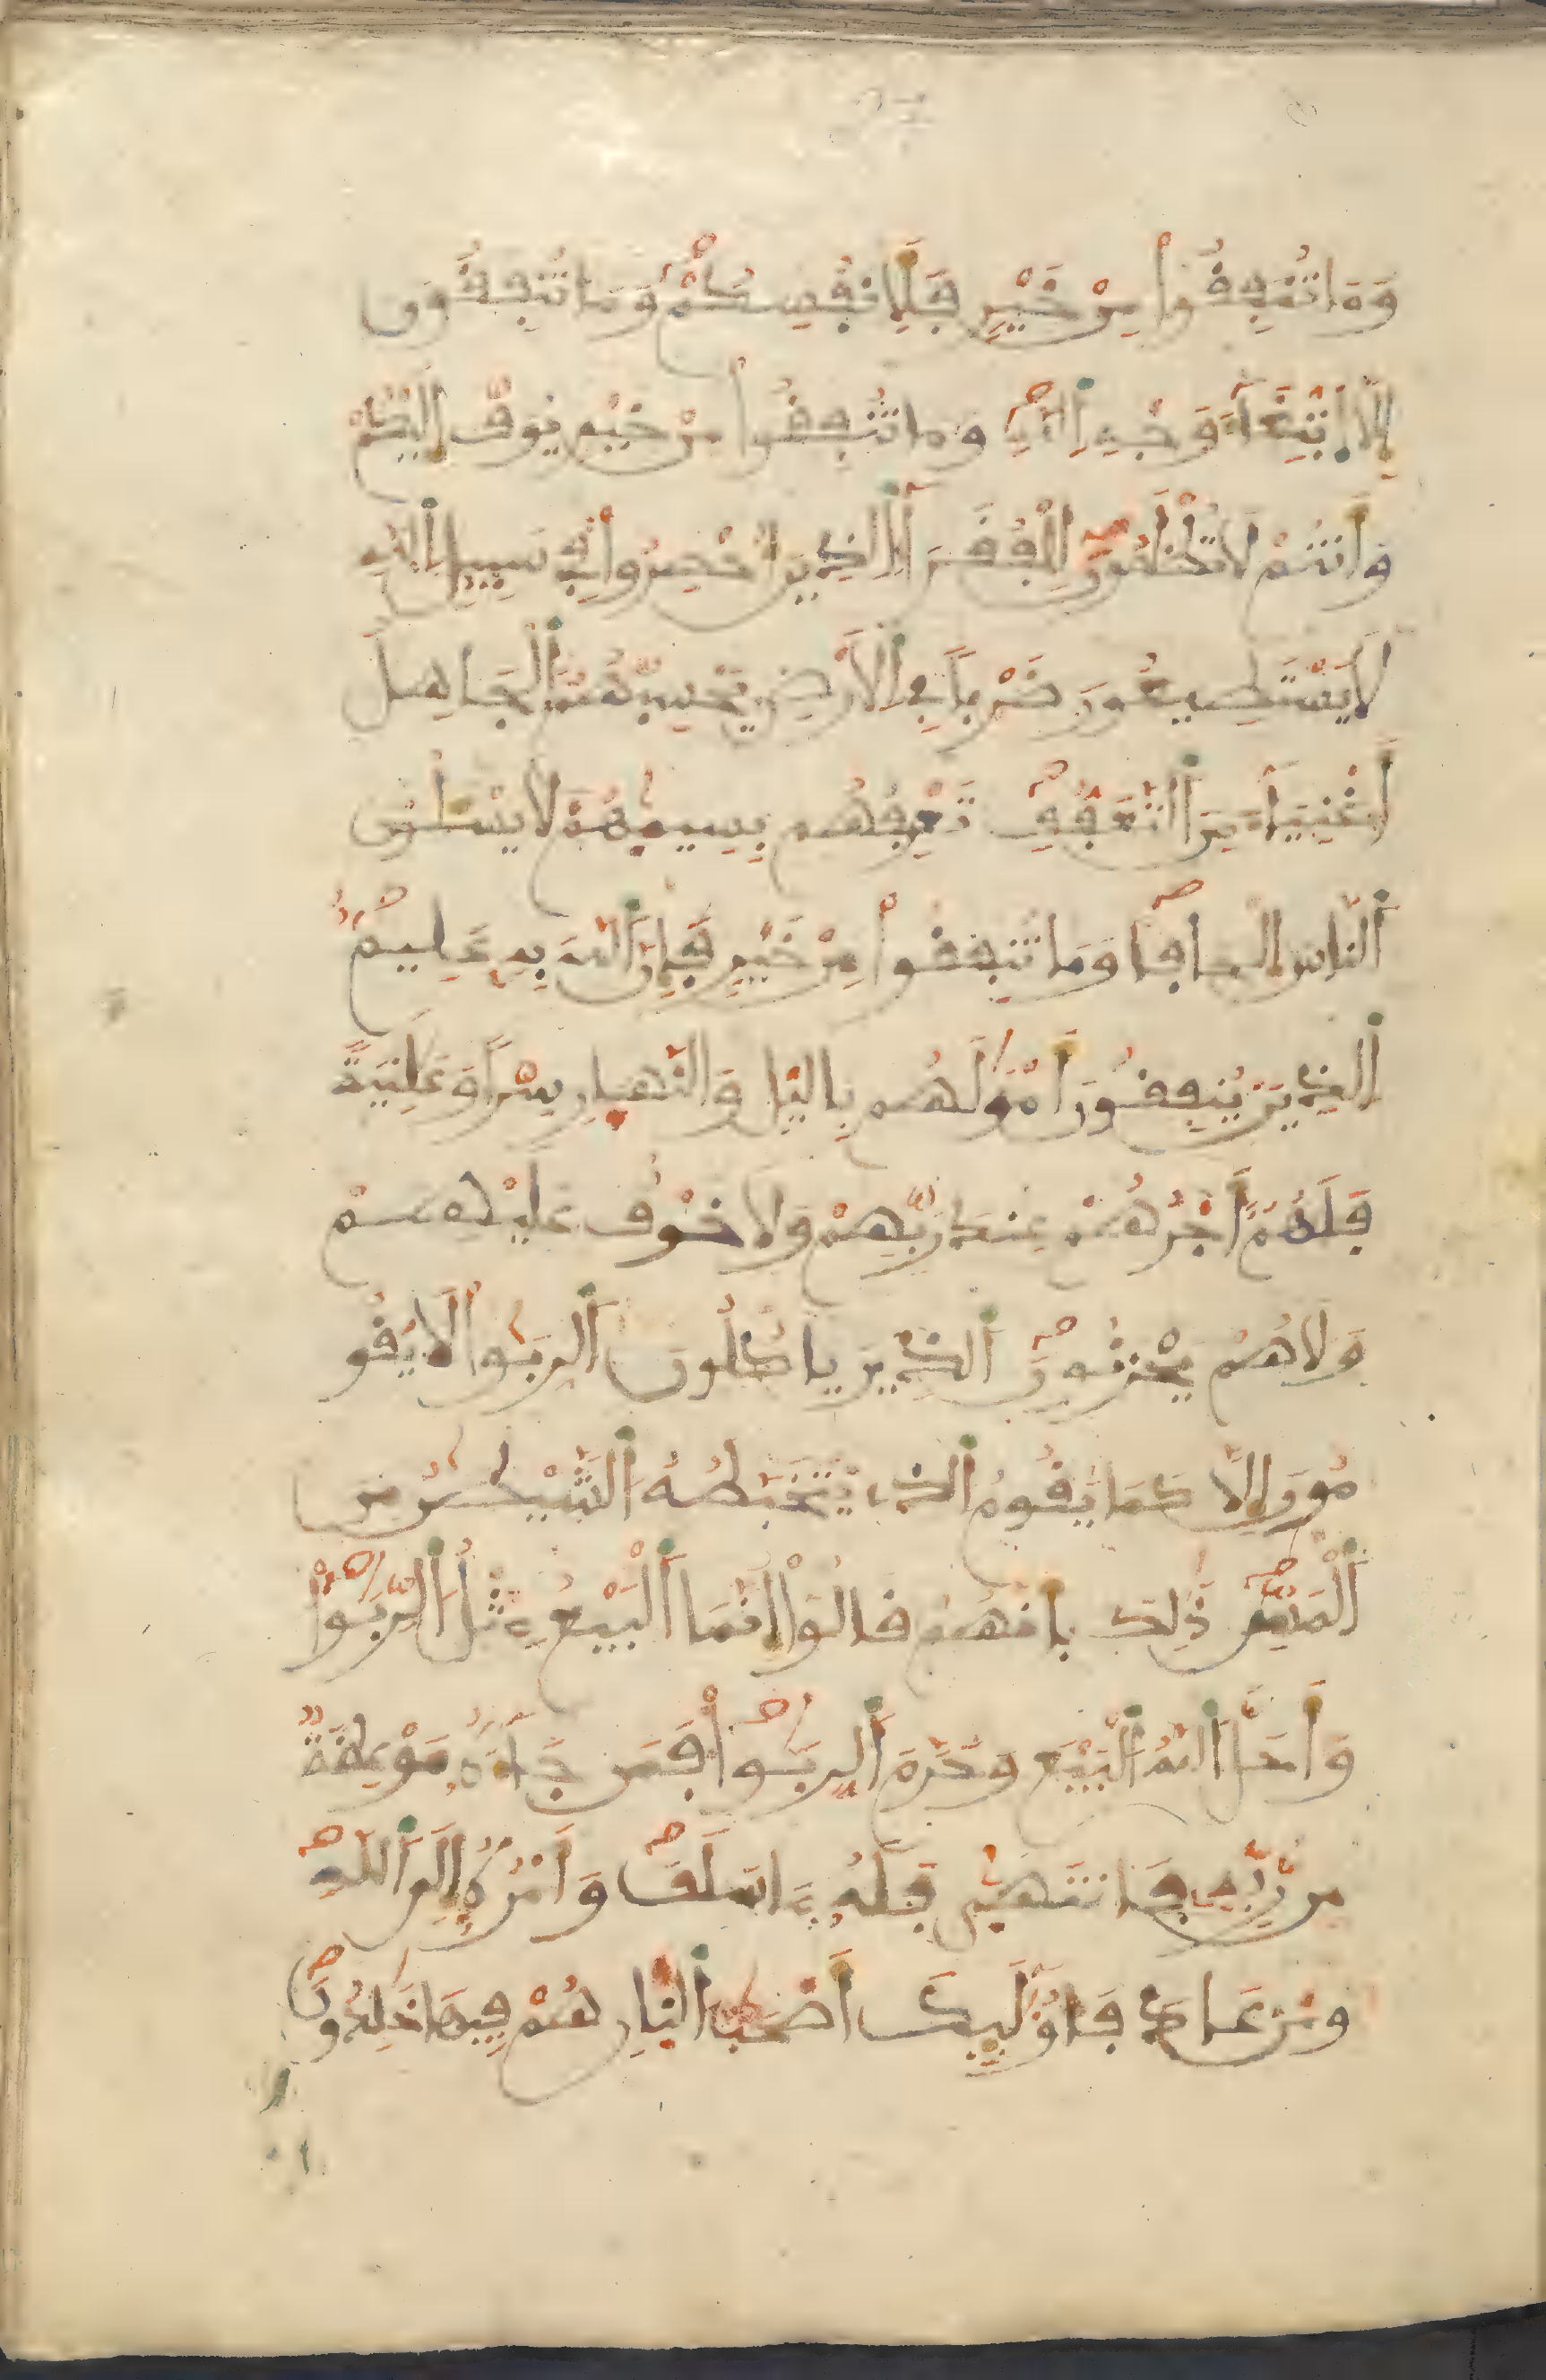 وَمَا تُنفِقُوا مِنْ خَيْرٍ فَلِأَنفُسِكُمْ وَمَا تُنفِقُونَ
إِلَّا ابْتِغَاءَ وَجْهِ اللَّهِ وَمَا تُنفِقُوا مِنْ خَيْرٍ يُوَفَّ إِلَيْكُمْ
وَأَنتُمْ لَا تُظْلَمُونَ لِلْفُقَرَاءِ الَّذِينَ أُحْصِرُوا فِي سَبِيلِ اللَّهِ
لَا يَسْتَطِيعُونَ ضَرْباً فِي الْأَرْضِ يَحْسِبُهُمُ الْجَاهِلُ
أَغْنِيَاءَ مِنَ التَّعَفُّفِ تَعْرِفُهُم بِسِيمَٰهُمْ لَا يَسْـَٔلُونَ
النَّاسَ إِلْحَافاً وَمَا تُنفِقُوا مِنْ خَيْرٍ فَإِنَّ اللَّهَ بِهِ عَلِيمٌ
الَّذِينَ يُنفِقُونَ أَمْوَٰلَهُم بِالَّيْلِ وَالنَّهَارِ سِرّاً وَعَلَٰنِيَةً
فَلَهُمُ أَجْرُهُمْ عِندَ رَبِّهِمْ وَلَا خَوْفٌ عَلَيْهِمْ
وَلَا هُمْ يَحْزَنُونَ الَّذِينَ يَاكُلُونَ الرِّبَوٰا لَا يَقُو
مُونَ إِلَّا كَمَا يَقُومُ الَّذِي يَتَخَبَّطُهُ الشَّيْطَٰنُ مِنَ
الْمَسِّ ذَٰلِكَ بِأَنَّهُمْ قَالُوا إِنَّمَا الْبَيْعُ مِثْلُ الرِّبَوٰا
وَأَحَلَّ اللَّهُ الْبَيْعَ وَحَرَّمَ الرِّبَوٰا فَمَن جَاءَهُ مَوْعِظَةٌ
مِّن رَّبِّهِ فَانتَهَىٰ فَلَهُ مَا سَلَفَ وَأَمْرُهُ إِلَى اللَّهِ
وَمَنْ عَادَ فَأُوْلَٰئِكَ أَصْحَٰبُ النَّارِ هُمْ فِيهَا خَٰلِدُونَ